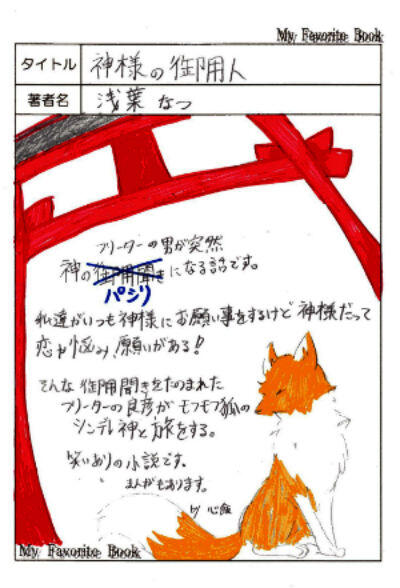 My Favorite Book
タイトル 神様の御用人
著者名 浅葉なつ
フリーターの男が突然
神の御用聞きになる話です。
パシリ
私達がいつも神様にお願い事をするけど神様だって
恋や悩み願いがある!
そんな御用聞きをたのまれた
フリーターの良彦がモフモフ狐の
ツンデレ神と旅をする。
笑いありの小説です。
まんがもあります。
by 心飯
My Favorite Book